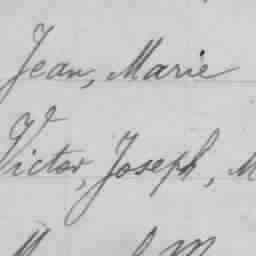 Jean, Marie
Victor, Joseph, M